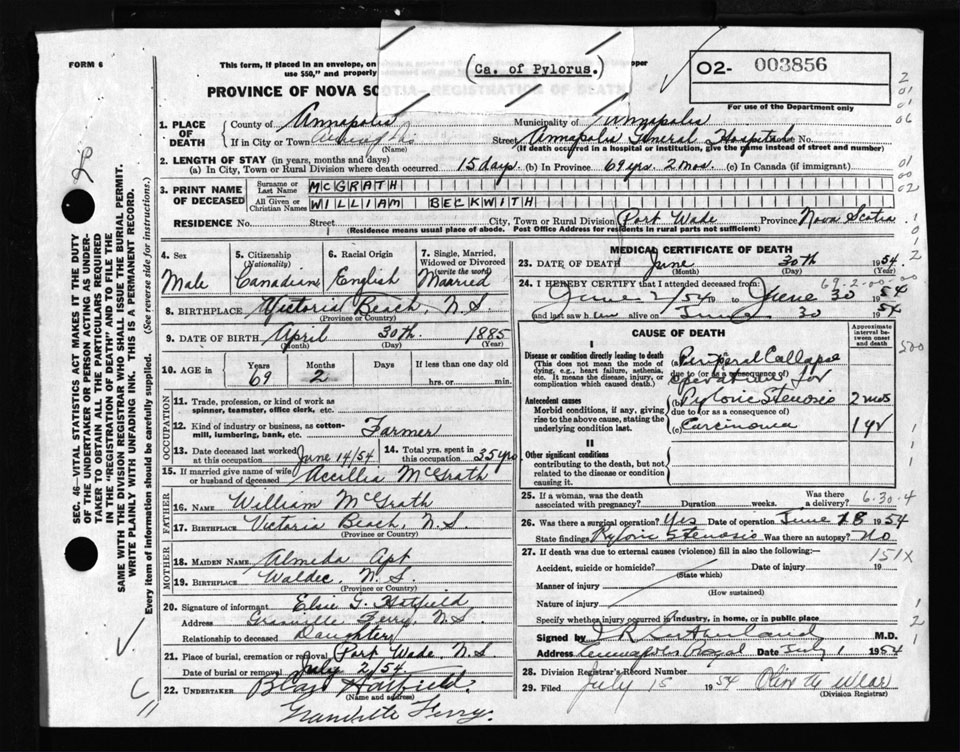 FORM 6
This form, if placed in an envelope, on
use $50," and properly
(Ca. of Pylorus.)
O2- 003856
For use of the Department only
PROVINCE OF NOVA SC
OTIA—REGISTRATION OF DEATH
1. PLACE OF DEATH
County of Annapolis Municipality of Annapolis
If in City or Town (Name) Street Annapolis General Hospital House No.
(If death occurred in a hospital or institution, give the name instead of street and number)
2. LENGTH OF STAY (in years, months and days)
(a) In City, Town or Rural Division where death occurred 15 days (b) In Province 69 yrs 2 mos. (c) In Canada (if immigrant)
3. PRINT NAME OF DECEASED
Surname or Last Name MCGRATH
All Given or Christian Names WILLIAM BECKWITH
RESIDENCE No. Street City, Town or Rural Division Port Wade Province Nova Scotia
(Residence means usual place of abode. Post Office Address for residents in rural parts not sufficient)
4. Sex Male
5. Citizenship (Nationality) Canadian
6. Racial Origin English
7. Single, Married, Widowed or Divorced (write the word) Married
8. BIRTHPLACE Victoria Beach, N.S.
(Province or Country)
9. DATE OF BIRTH April 30th 1885
(Month) (Day) (Year)
10. AGE in Years 69 Months 2 Days If less than one day old
hrs. or min.
OCCUPATION
11. Trade, profession, or kind of work as
spinner, teamster, office clerk, etc.
12. Kind of industry or business, as cotton-
mill, lumbering, bank, etc. Farmer
13. Date deceased last worked at this occupation June 14/54
14. Total yrs. spent in this occupation 35 yrs
15. If married give name of wife or husband of deceased Accillia McGrath
FATHER
16. NAME William McGrath
17. BIRTHPLACE Victoria Beach, N.S.
(Province or Country)
MOTHER
18. MAIDEN NAME Almeda Apt
19. BIRTHPLACE Waldec, N.S.
(Province or Country)
20. Signature of informant Elsie G. Hatfield
Address Granville Ferry, N.S.
Relationship to deceased Daughter
21. Place of burial, cremation or removal Port Wade, N.S.
Date of burial or removal July 2/54
22. UNDERTAKER Hatfield
(Name and address)
Granville Ferry.
MEDICAL CERTIFICATE OF DEATH
23. DATE OF DEATH June 30th 1954
(Month) (Day) (Year)
69-2-00
24. I HEREBY CERTIFY that I attended deceased from:
June 2/54 19 to June 30 1954
and last saw him alive on June 30 1954
CAUSE OF DEATH
Approximate interval between onset and death
I
Disease or condition directly leading to death
(This does not mean the mode of dying, e.g., heart failure, asthenia, etc. It means the disease, injury, or complication which caused death.)
(a) Peripheral Collapse
due to (or as a consequence of)
operation for
Antecedent causes
Morbid conditions, if any, giving rise to the above cause, stating the underlying condition last.
(b) Pyloric Stenosis 2 mos
due to (or as a consequence of)
(c) Carcinoma 1 yr
II
Other significant conditions
contributing to the death, but not related to the disease or condition causing it.
25. If a woman, was the death associated with pregnancy? Duration weeks. Was there a delivery?
6-30-4
26. Was there a surgical operation? Yes Date of operation June 18 1954
State findings Pyloric Stenosis Was there an autopsy? No
27. If death was due to external causes (violence) fill in also the following:—
151X
Accident, suicide or homicide? (State which) Date of injury 19
Manner of injury
(How sustained)
Nature of injury
Specify whether injury occurred in industry, in home, or in public place
Signed by M.D.
Address Annapolis Royal Date July 1 1954
28. Division Registrar's Record Number
29. Filed July 15 1954
(Division Registrar)
SEC. 46—VITAL STATISTICS ACT MAKES IT THE DUTY
OF THE UNDERTAKER OR PERSON ACTING AS UNDER-
TAKER TO OBTAIN ALL THE PARTICULARS REQUIRED
IN THE "REGISTRATION OF DEATH" AND TO FILE THE
SAME WITH THE DIVISION REGISTRAR WHO SHALL ISSUE THE BURIAL PERMIT.
WRITE PLAINLY WITH UNFADING INK. THIS IS A PERMANENT RECORD.
Every item of information should be carefully supplied. (See reverse side for instructions.)